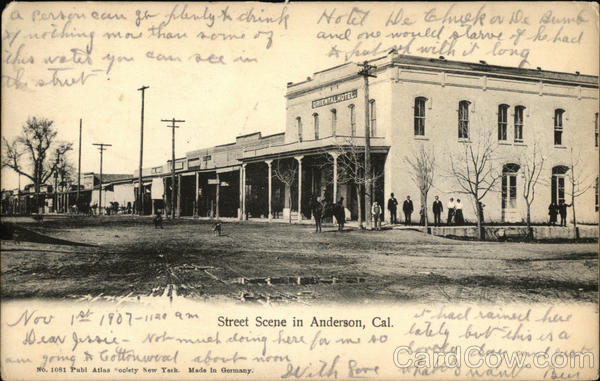 a person can get plenty to drink
if nothing more than some of
this water you can see in
the street
Hotel De Chuck or De Bumb
and one would starve if he had
to put up with it long
ORIENTAL HOTEL
Nov 1st 1907-11 20 am
Street Scene in Anderson, Cal.
Dear Jessie - Not much doing here for me so
am going to Cottonwood about noon
No. 1081 Publ Atlas Society New York. Made in Germany.
it had rained here
lately but this is a
what I want
With love
CardCow.com